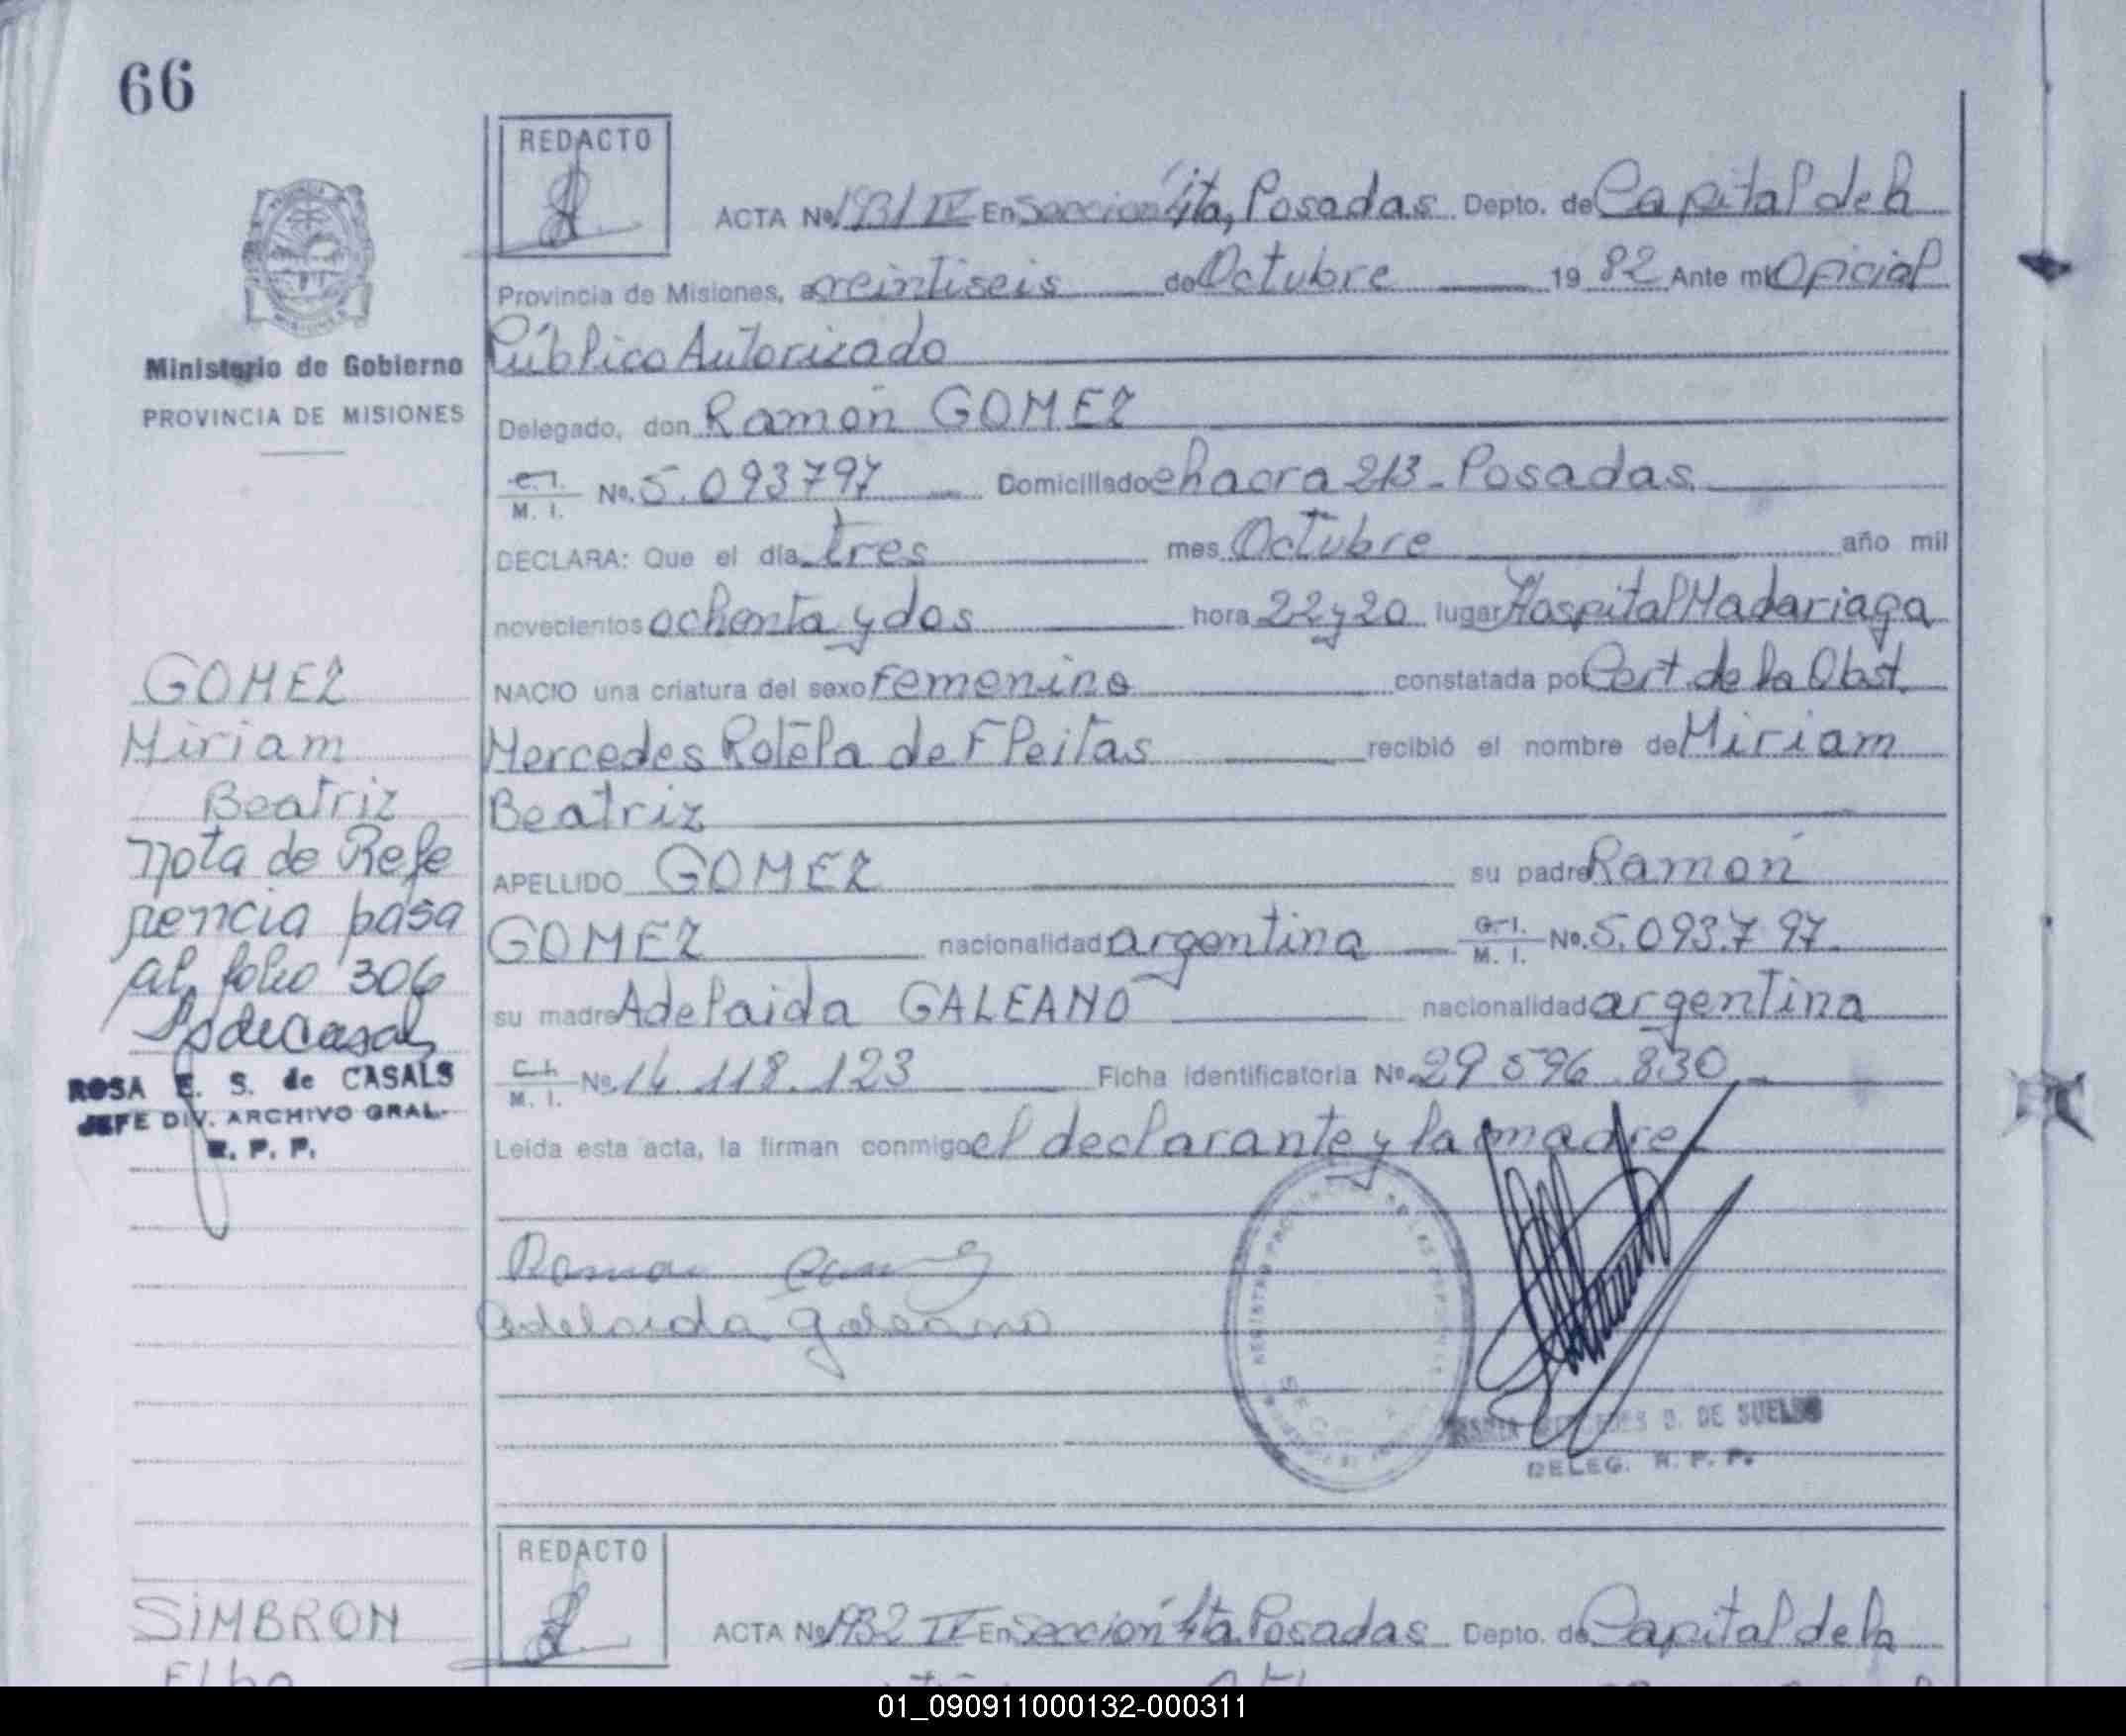 66
REDACTO
ACTA Nº 1931 IV En Sección 4ta, Posadas Depto. de Capital de la
Provincia de Misiones, a veintiseis de Octubre 19 82 Ante mi Oficial
Ministerio de Gobierno
Público Autorizado
PROVINCIA DE MISIONES
Delegado, don Ramón GOMEZ
C.I. M. I. Nº. 5.093797 Domiciliado chacra 213 - Posadas
DECLARA: Que el día tres mes Octubre año mil
novecientos ochenta y dos hora 22 y 20 lugar Hospital Madariaga
GOMEZ
NACIO una criatura del sexo Femenino constatada por Cert. de la Obst.
Miriam
Mercedes Rotela de Fleitas recibió el nombre de Miriam
Beatriz
Beatriz
Nota de Refe
APELLIDO GOMEZ su padre Ramón
rencia pasa
GOMEZ nacionalidad argentina C.I. M. I. Nº. 5.093.797
al folio 306
su madre Adelaida GALEANO nacionalidad argentina
ROSA E. S. de CASALS
C.I. M. I. Nº 14.118.123 Ficha identificatoria Nº. 29 596.830
JEFE DIV. ARCHIVO GRAL.
R. P. P.
Leída esta acta, la firman conmigo el declarante y la madre
Ramon
Adelaida Galeano
D. DE SUELDO
DELEG. R. P. P.
REDACTO
SIMBRON
ACTA Nº 1932 IV En Sección 4ta. Posadas Depto. de Capital de la
01_090911000132-000311